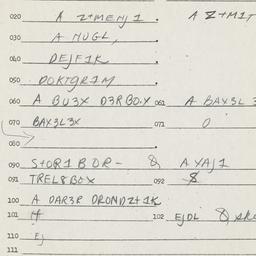 020 A Z+MENJ1 . A Z+M1T
030 A NUGL,
040 DEJF1K
050 DOKTGR1M
060 A BU3X D3RBO.Y 061 A BAX3L 3
070 BAX3L3X 071 0
080
090 S+OR1 BOR- & A YAJ1
091 TREL8BOX 092 8
100 A DAR3R DRONDZ+1K
101 H 102 EJDL &
110 EJ
111